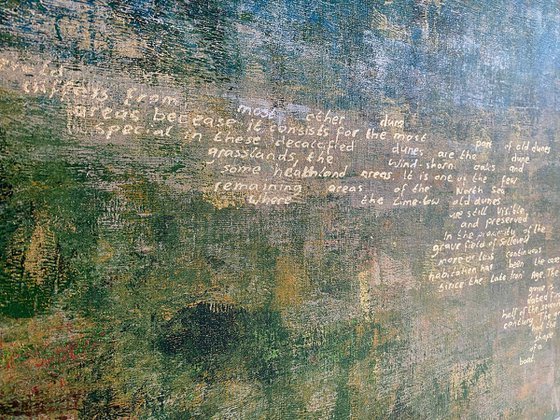 differs from most other dune
areas because it consists for the most part of old dunes
special in these decalcified dunes are the dune
grasslands, the wind-shorn oaks and
some heathland areas. It is one of the few
remaining areas of the North Sea
where the lime-low old dunes
are still visible
and preserved
in the vicinity of the
grave field of Solleveld
more or less continuous
habitation has been the case
since the Late Iron Age.
half of the
century
shape
of a
boat